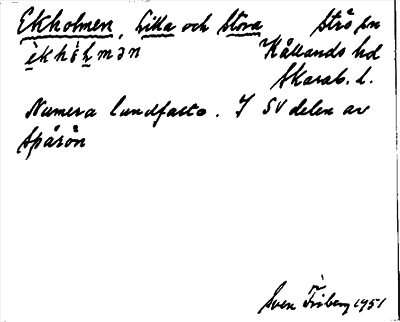 Ekholmen, Lilla och Stora Strö sn
ekhol̥mən Kållands hd
Skarab. l.
Numera landfasta. I SV delen av
Spårön
Sven Friberg 1951